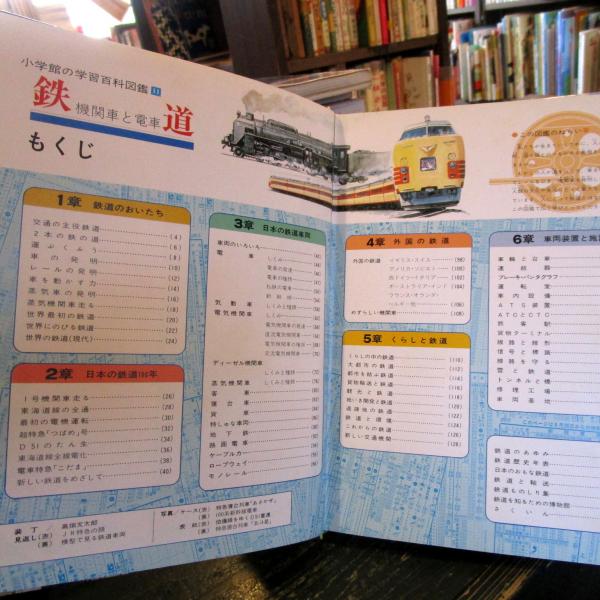 小学館の学習百科図鑑 11
鉄道
機関車と電車
もくじ
1章 鉄道のおいたち
交通の主役鉄道 (4)
2本の鉄の道 (6)
運ぶくふう (8)
車の発明 (10)
レールの発明 (12)
車を動かす力 (14)
蒸気車の発明 (16)
蒸気機関車走る (18)
世界最初の鉄道 (20)
世界にのびる鉄道 (22)
世界の鉄道(現代) (24)
2章 日本の鉄道100年
1号機関車走る (26)
東海道線の全通 (28)
最初の電機運転 (30)
超特急「つばめ」号 (32)
D51のたん生 (34)
東海道線全線電化 (36)
電車特急「こだま」 (38)
新しい鉄道をめざして (40)
3章 日本の鉄道車両
車両のいろいろ
電車 しくみ
電車の発達
電車の種類
私鉄の電車
新幹線
気動車 しくみと種類
電気機関車 しくみ
電気機関車の発達
直流電気機関車
交流電気機関車
交直流電気機関車
ディーゼル機関車
しくみと種類
蒸気機関車 しくみと種類
客車
寝台車
貨車
特しゅな車両
地下鉄
路面電車
ケーブルカー
ロープウェイ
モノレール
4章 外国の鉄道
外国の鉄道 イギリス・スイス (98)
アメリカ・ソビエト (100)
西ドイツ・イタリア (102)
オーストラリア・インド (104)
フランス・オランダ・
ベルギー他 (106)
めずらしい機関車 (108)
5章 くらしと鉄道
くらしの中の鉄道 (110)
大都市の鉄道 (112)
都市を結ぶ鉄道 (114)
貨物輸送と鉄道 (116)
観光と鉄道 (118)
地いき開発と鉄道 (120)
過疎地の鉄道 (122)
鉄道と環境 (124)
これからの鉄道 (126)
新しい交通機関 (128)
●この図鑑のねらい
6章 車両装置と施
車輪と台車
連結器
ブレーキ・パンタグラフ
運転室
車内設備
ATS装置
ATCとCTC
旅客駅
貨物ターミナル
線路と線形
信号と標識
線路を守る
雪と鉄道
トンネルと橋
修理工場
車両基地
鉄道のあゆみ
鉄道歴史年表
日本のおもな鉄道
鉄道と輸送
鉄道ものしり集
鉄道を知るための博物館
さくいん
装丁/高畑友太郎
見返し(表) JR特急の顔
(裏) 模型で見る鉄道車両
写真・ケース(表) 特急寝台列車「あさかぜ」
(裏) 100系新幹線電車
表紙(表) 伯備線をゆくD51重連
(裏) 特急寝台列車「北斗星」